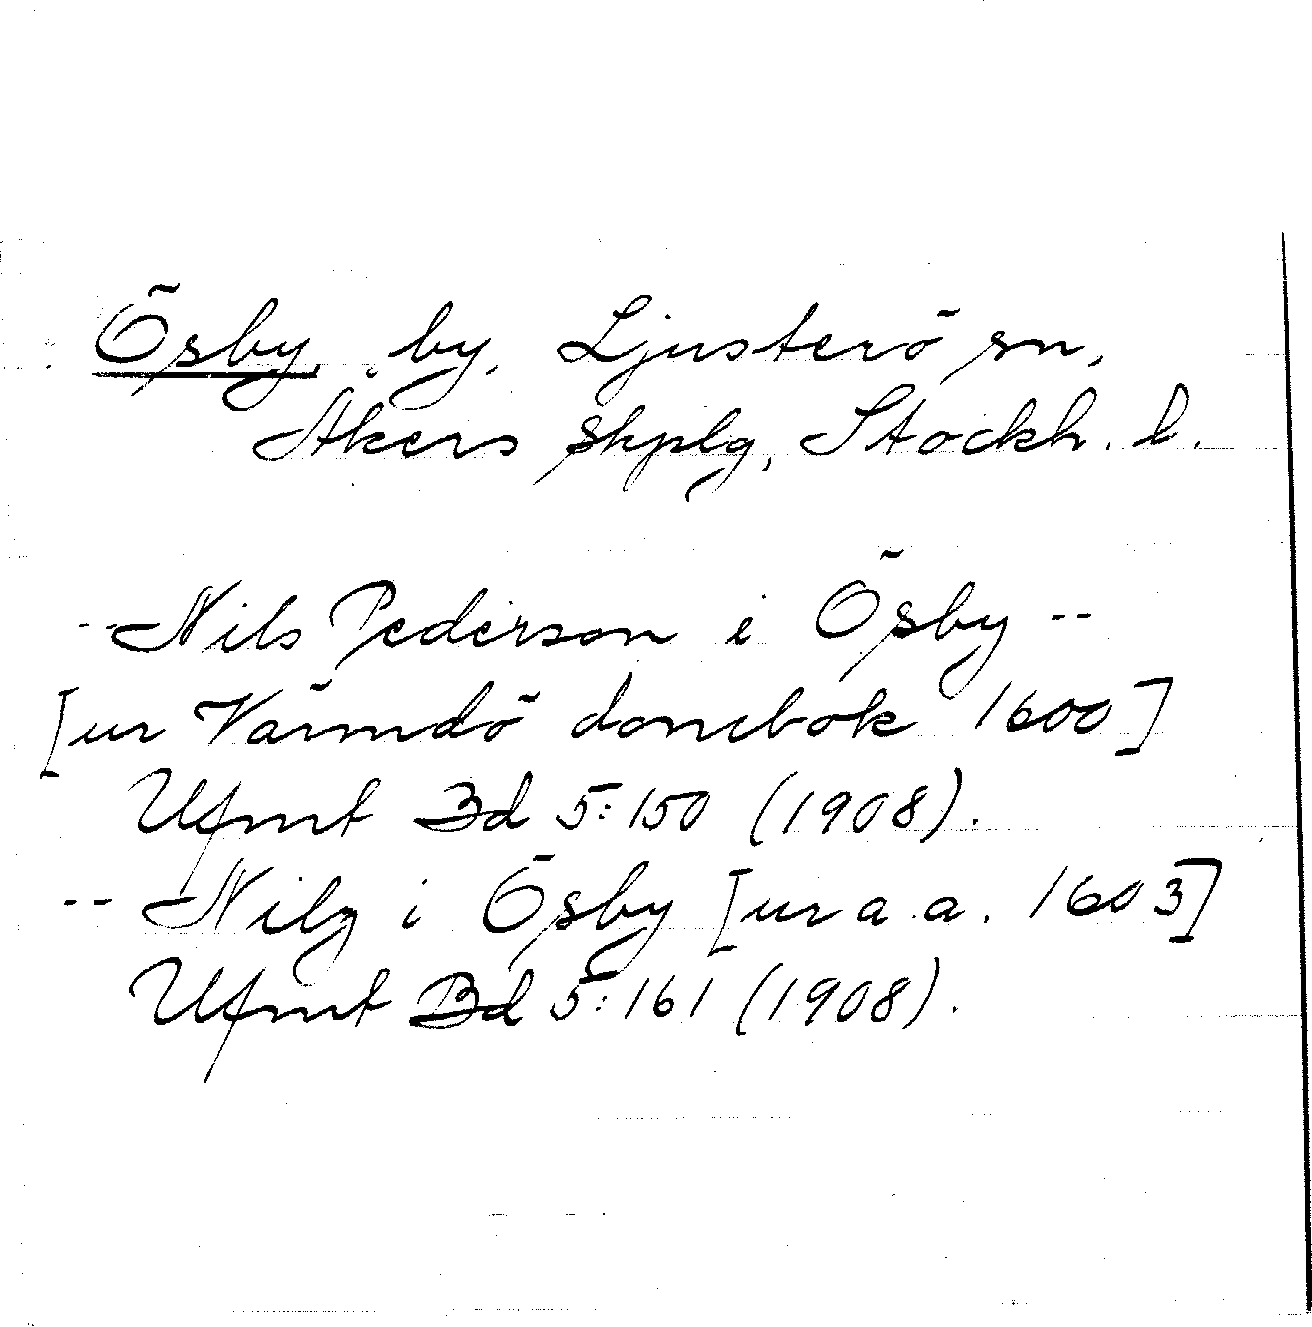 Ösby, by, Ljusterö sn,
Åkers skplg, Stockh. l.
-- Nils Pederson i Ösby --
[ur Värmdö dombok 1600]
Ufmt Bd 5:150 (1908).
-- Nilz i Ösby [ur a. a. 1603]
Ufmt Bd 5:161 (1908).